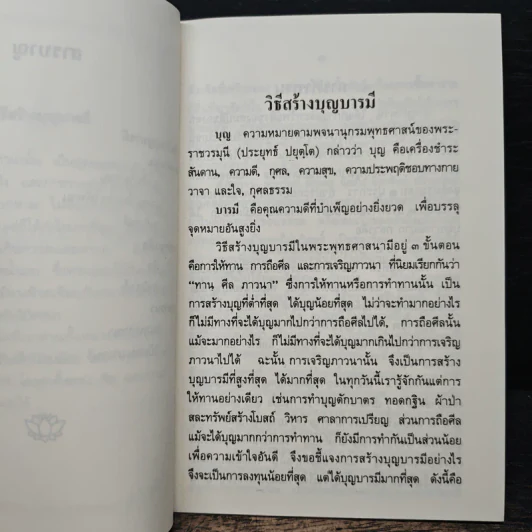 สารบาญ
วิธีสร้างบุญบารมี
บุญ ความหมายตามพจนานุกรมพุทธศาสน์ของพระ-
ราชวรมุนี (ประยุทธ์ ปยุตฺโต) กล่าวว่า บุญ คือเครื่องชำระ
สันดาน, ความดี, กุศล, ความสุข, ความประพฤติชอบทางกาย
วาจา และใจ, กุศลธรรม
บารมี คือคุณความดีที่บำเพ็ญอย่างยิ่งยวด เพื่อบรรลุ
จุดหมายอันสูงยิ่ง
วิธีสร้างบุญบารมีในพระพุทธศาสนามีอยู่ ๓ ขั้นตอน
คือการให้ทาน การถือศีล และการเจริญภาวนา ที่นิยมเรียกกันว่า
“ทาน ศีล ภาวนา” ซึ่งการให้ทานหรือการทำทานนั้น เป็น
การสร้างบุญที่ต่ำที่สุด ได้บุญน้อยที่สุด ไม่ว่าจะทำมากอย่างไร
ก็ไม่มีทางที่จะได้บุญมากไปกว่าการถือศีลไปได้. การถือศีลนั้น
แม้จะมากอย่างไร ก็ไม่มีทางที่จะได้บุญมากเกินไปกว่าการเจริญ
ภาวนาไปได้ ฉะนั้น การเจริญภาวนานั้น จึงเป็นการสร้าง
บุญบารมีที่สูงที่สุด ได้มากที่สุด ในทุกวันนี้เรารู้จักกันแต่การ
ให้ทานอย่างเดียว เช่นการทำบุญตักบาตร ทอดกฐิน ผ้าป่า
สละทรัพย์สร้างโบสถ์ วิหาร ศาลาการเปรียญ ส่วนการถือศีล
แม้จะได้บุญมากกว่าการทำทาน ก็ยังมีการทำกันเป็นส่วนน้อย
เพื่อความเข้าใจอันดี จึงขอชี้แจงการสร้างบุญบารมีอย่างไร
จึงจะเป็นการลงทุนน้อยที่สุด แต่ได้บุญบารมีมากที่สุด ดังนี้คือ